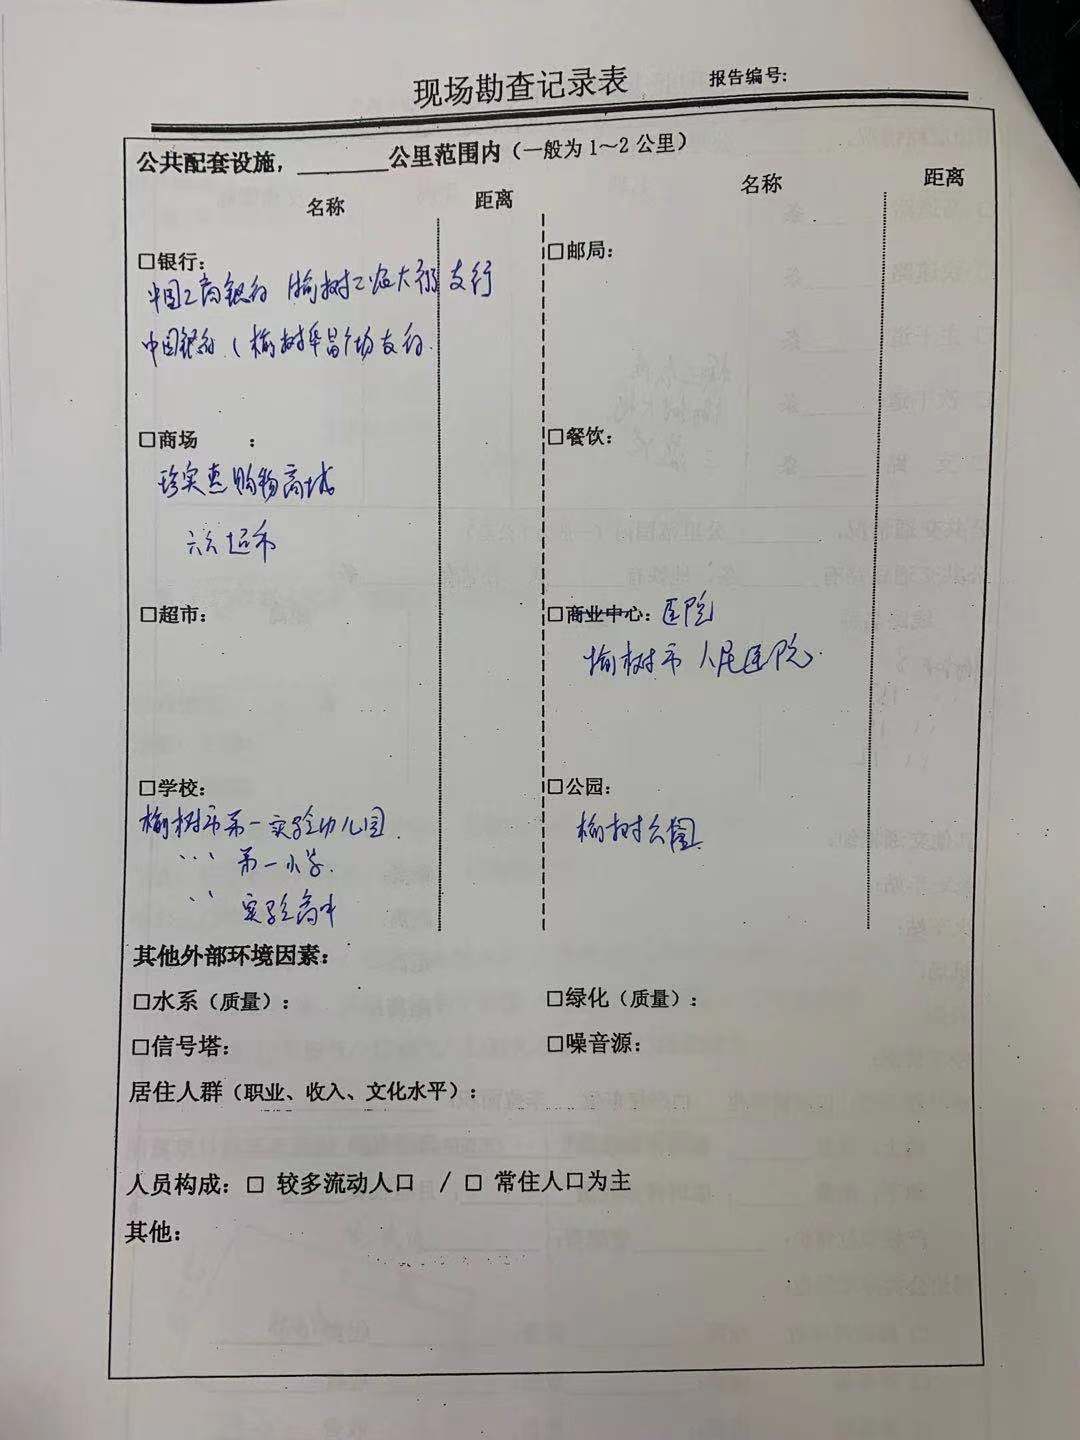 现场勘查记录表 报告编号:
公共配套设施，________公里范围内（一般为1～2公里）
名称 距离 名称 距离
□银行: □邮局:
中国工商银行 (榆树工农大街支行
中国银行 (榆树华昌广场支行.
□商场 : □餐饮:
珍实惠购物商城
六六超市
□超市: □商业中心: 医院
榆树市人民医院
□学校: □公园:
榆树市第一实验幼儿园 榆树公园
第一小学.
实验高中
其他外部环境因素:
□水系（质量）: □绿化（质量）:
□信号塔: □噪音源:
居住人群（职业、收入、文化水平）:
人员构成: □ 较多流动人口 / □ 常住人口为主
其他: